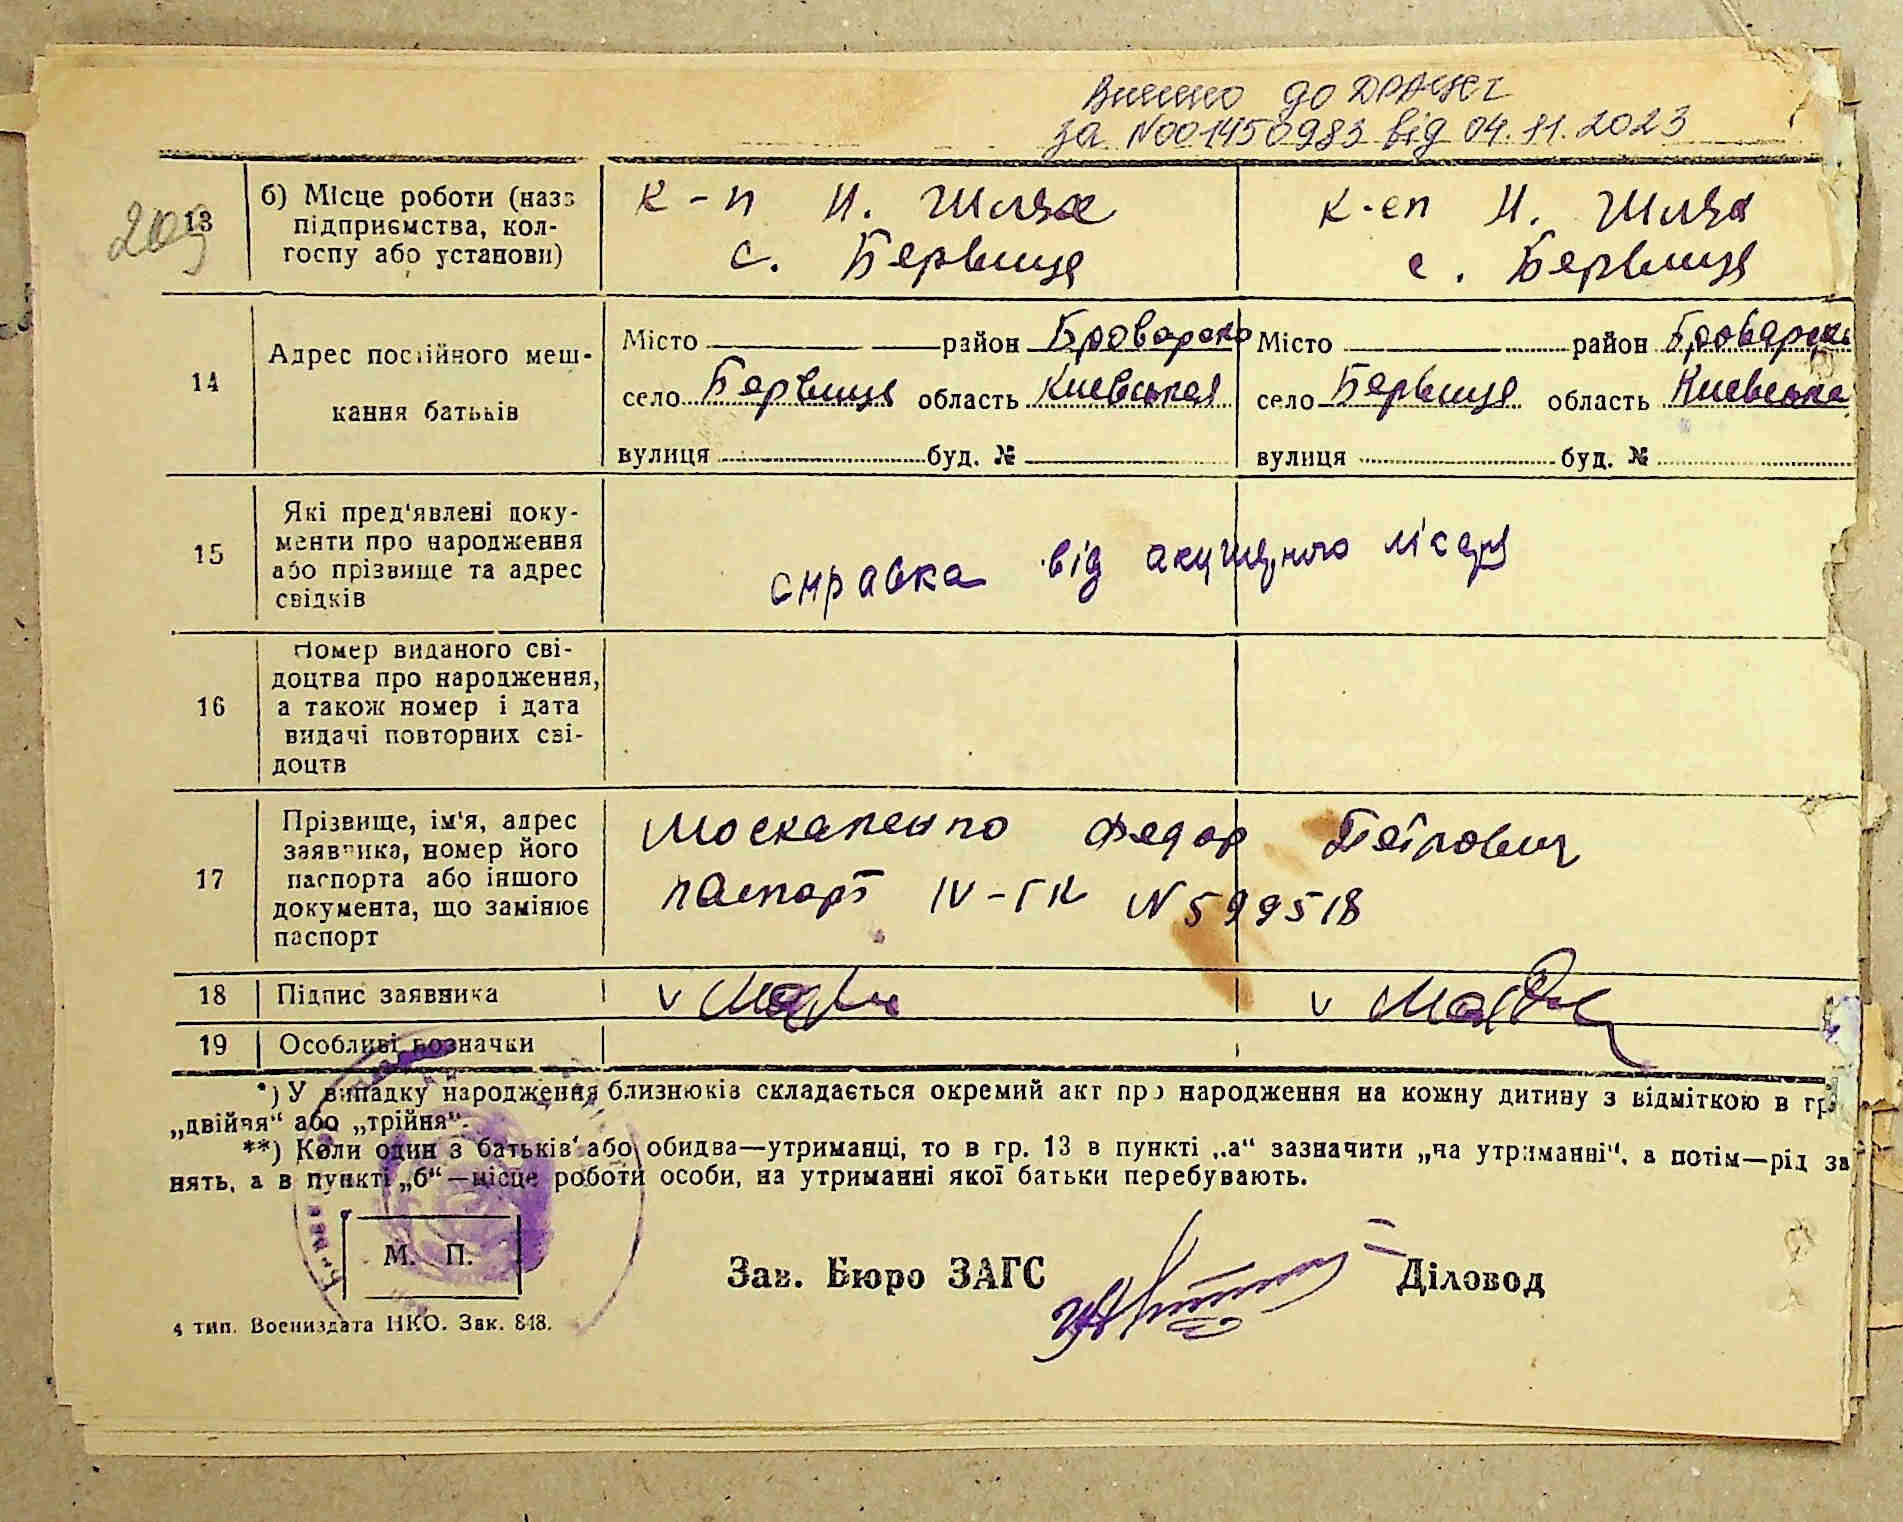 Внесено до ДРАЦСГ
за №001450983 від 04.11.2023
209
13
б) Місце роботи (назв
підприємства, кол-
госпу або установи)
к-п Н. Шлях
с. Бервиця
к-еп Н. Шлях
с. Бервиця
14
Адрес постійного меш-
кання батьків
Місто район Броварско
село Бервиця область Киевськая
вулиця буд. №
Місто район Броварськ
село Бервиця область Киевська
вулиця буд. №
15
Які пред'явлені доку-
менти про народження
або прізвище та адрес
свідків
справка від акушерного
16
Номер виданого сві-
доцтва про народження,
а також номер і дата
видачі повторних сві-
доцтв
17
Прізвище, ім'я, адрес
заявника, номер його
паспорта або іншого
документа, що замінює
паспорт
Москаленко Федор Петрович
паспорт IV-ГК N 599518
18
Підпис заявника
v
v
19
Особливі позначки
*) У випадку народження близнюків складається окремий акт про народження на кожну дитину з відміткою в гр.
„двійня“ або „трійня“.
**) Коли один з батьків або обидва—утриманці, то в гр. 13 в пункті „а“ зазначити „на утриманні“, а потім—рід за
нять, а в пункті „б“—місце роботи особи, на утриманні якої батьки перебувають.
М. П.
Зав. Бюро ЗАГС
Діловод
4 тип. Воениздата НКО. Зак. 848.